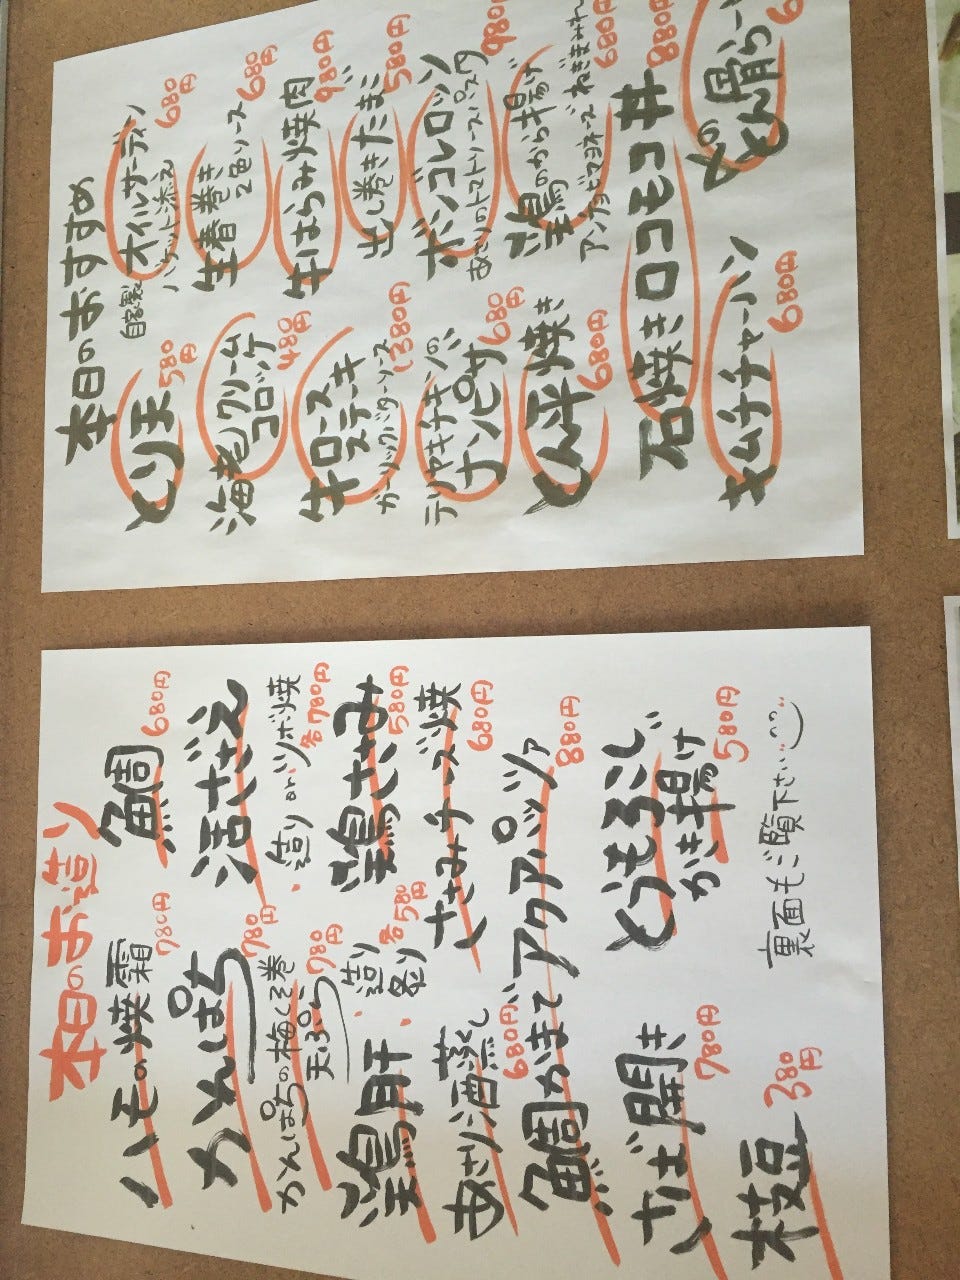 本日のおすすめ
とり天 580円
自家製 オイルサーディン 680円
バケット添え
海老クリームコロッケ 480円
生春巻き 2色ソース 680円
牛ロースステーキ 1380円
ガーリックバターソース
牛はらみ焼肉 980円
出し巻きたまご 580円
テリヤキチキンの
ナンピザ 680円
ボンゴレロッソ 980円
あさりのトマトソースパスタ
とん平焼き 680円
地鶏のから揚げ 680円
アンチョビマヨネーズ
石焼きロコモコ丼 880円
キムチチャーハン 680円
本日のお造り
ハモの焼霜 780円
鯛 680円
かんぱち 780円
活さざえ
・造り or ツボ焼 各780円
かんぱちの梅しそ巻
天ぷら 780円
地鶏肝
・造り
・炙り 各580円
地鶏ささみ 580円
ささみチーズ焼 680円
あさり酒蒸し 680円
鯛かまでアクアパッツァ 880円
さば開き 780円
とうもろこし
かき揚げ 580円
枝豆 380円
裏面もご覧下さい